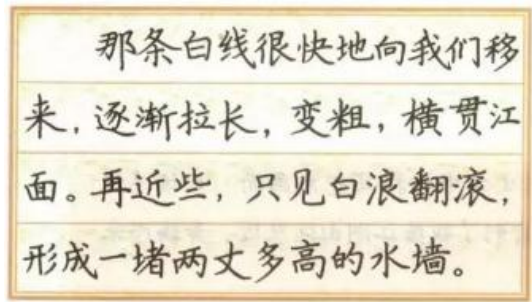 那条白线很快地向我们移
来，逐渐拉长，变粗，横贯江
面。再近些，只见白浪翻滚，
形成一堵两丈多高的水墙。